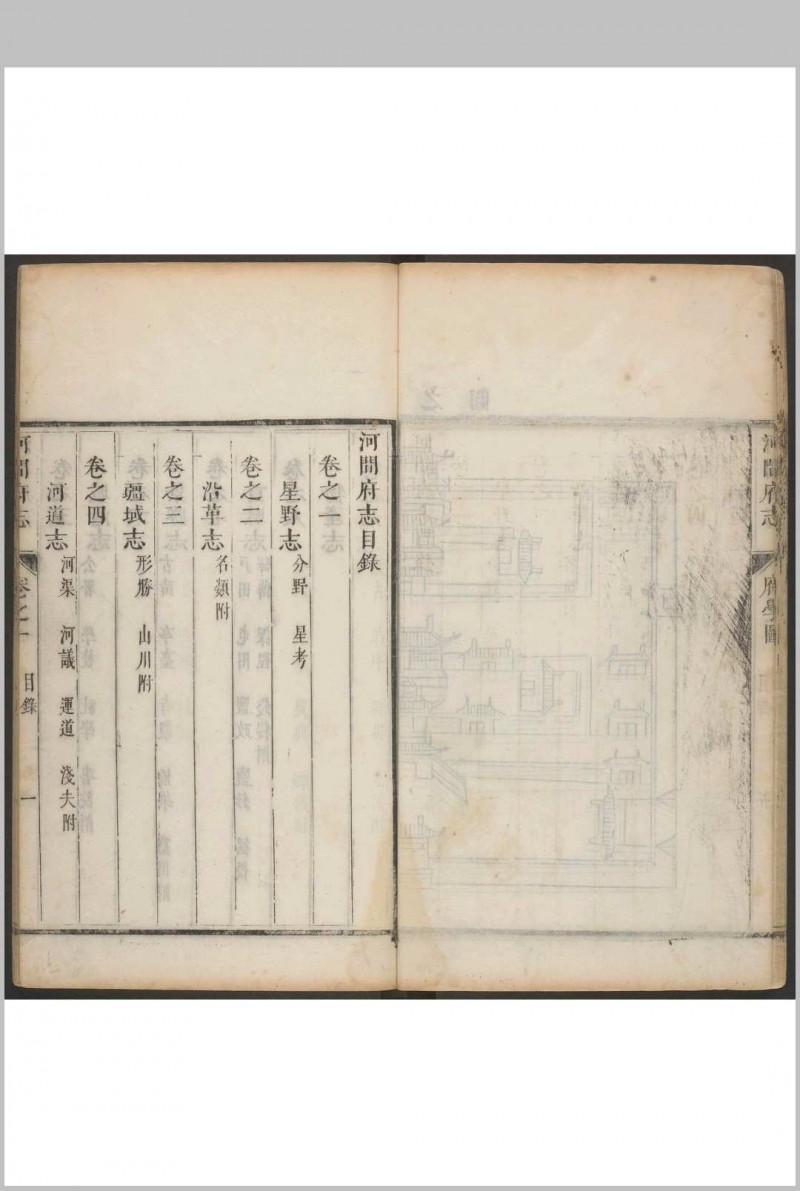 河間府志
府學圖
河間府志目錄
卷之一
星野志 分野 星考
卷之二
沿革志 名類附
卷之三
疆域志 形勝 山川附
卷之四
河道志 河渠 河議 運道 淺夫附
河間府志 卷之一 目錄 一